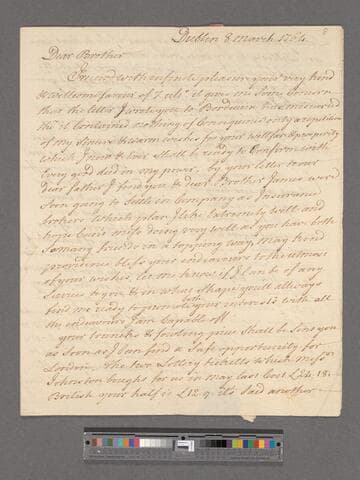 Dublin 8 March 1764
8
Dear Brother
I receivd with infinite pleasure your very kind
& wellcom favour of 7. ulto. it gave me some Concern
that the letter I wrote you to Bordeaux had miscarried
tho' it Contained nothing of Consequence only a repetition
of my sincere & warm wishes for your wellfare & prosperity
which I now & ever shall be ready to Confirm with
Every good deed in my power. by your letter to our
Dear father I find you & dear Brother James were
soon going to settle in Company as Insurance
brokers which plan I like Extremely well and
hope youl miss doing very well as you have both
so many friends in a topping way, may kind
providence bless your endeavours to the utmost
of your wishes, let me know if I Can be of any
Service to you & in what Shape youll allways
find me ready to promote your interests with all
both
the endeavours I am Capable off
your trunks & fowling piece shall be sent you
as soon as I can find a safe opportunity for
London. The two Lottery tickets which Messrs
Johnston bought for us in may last Cost £24.18.
British your half is £12.9. its said another